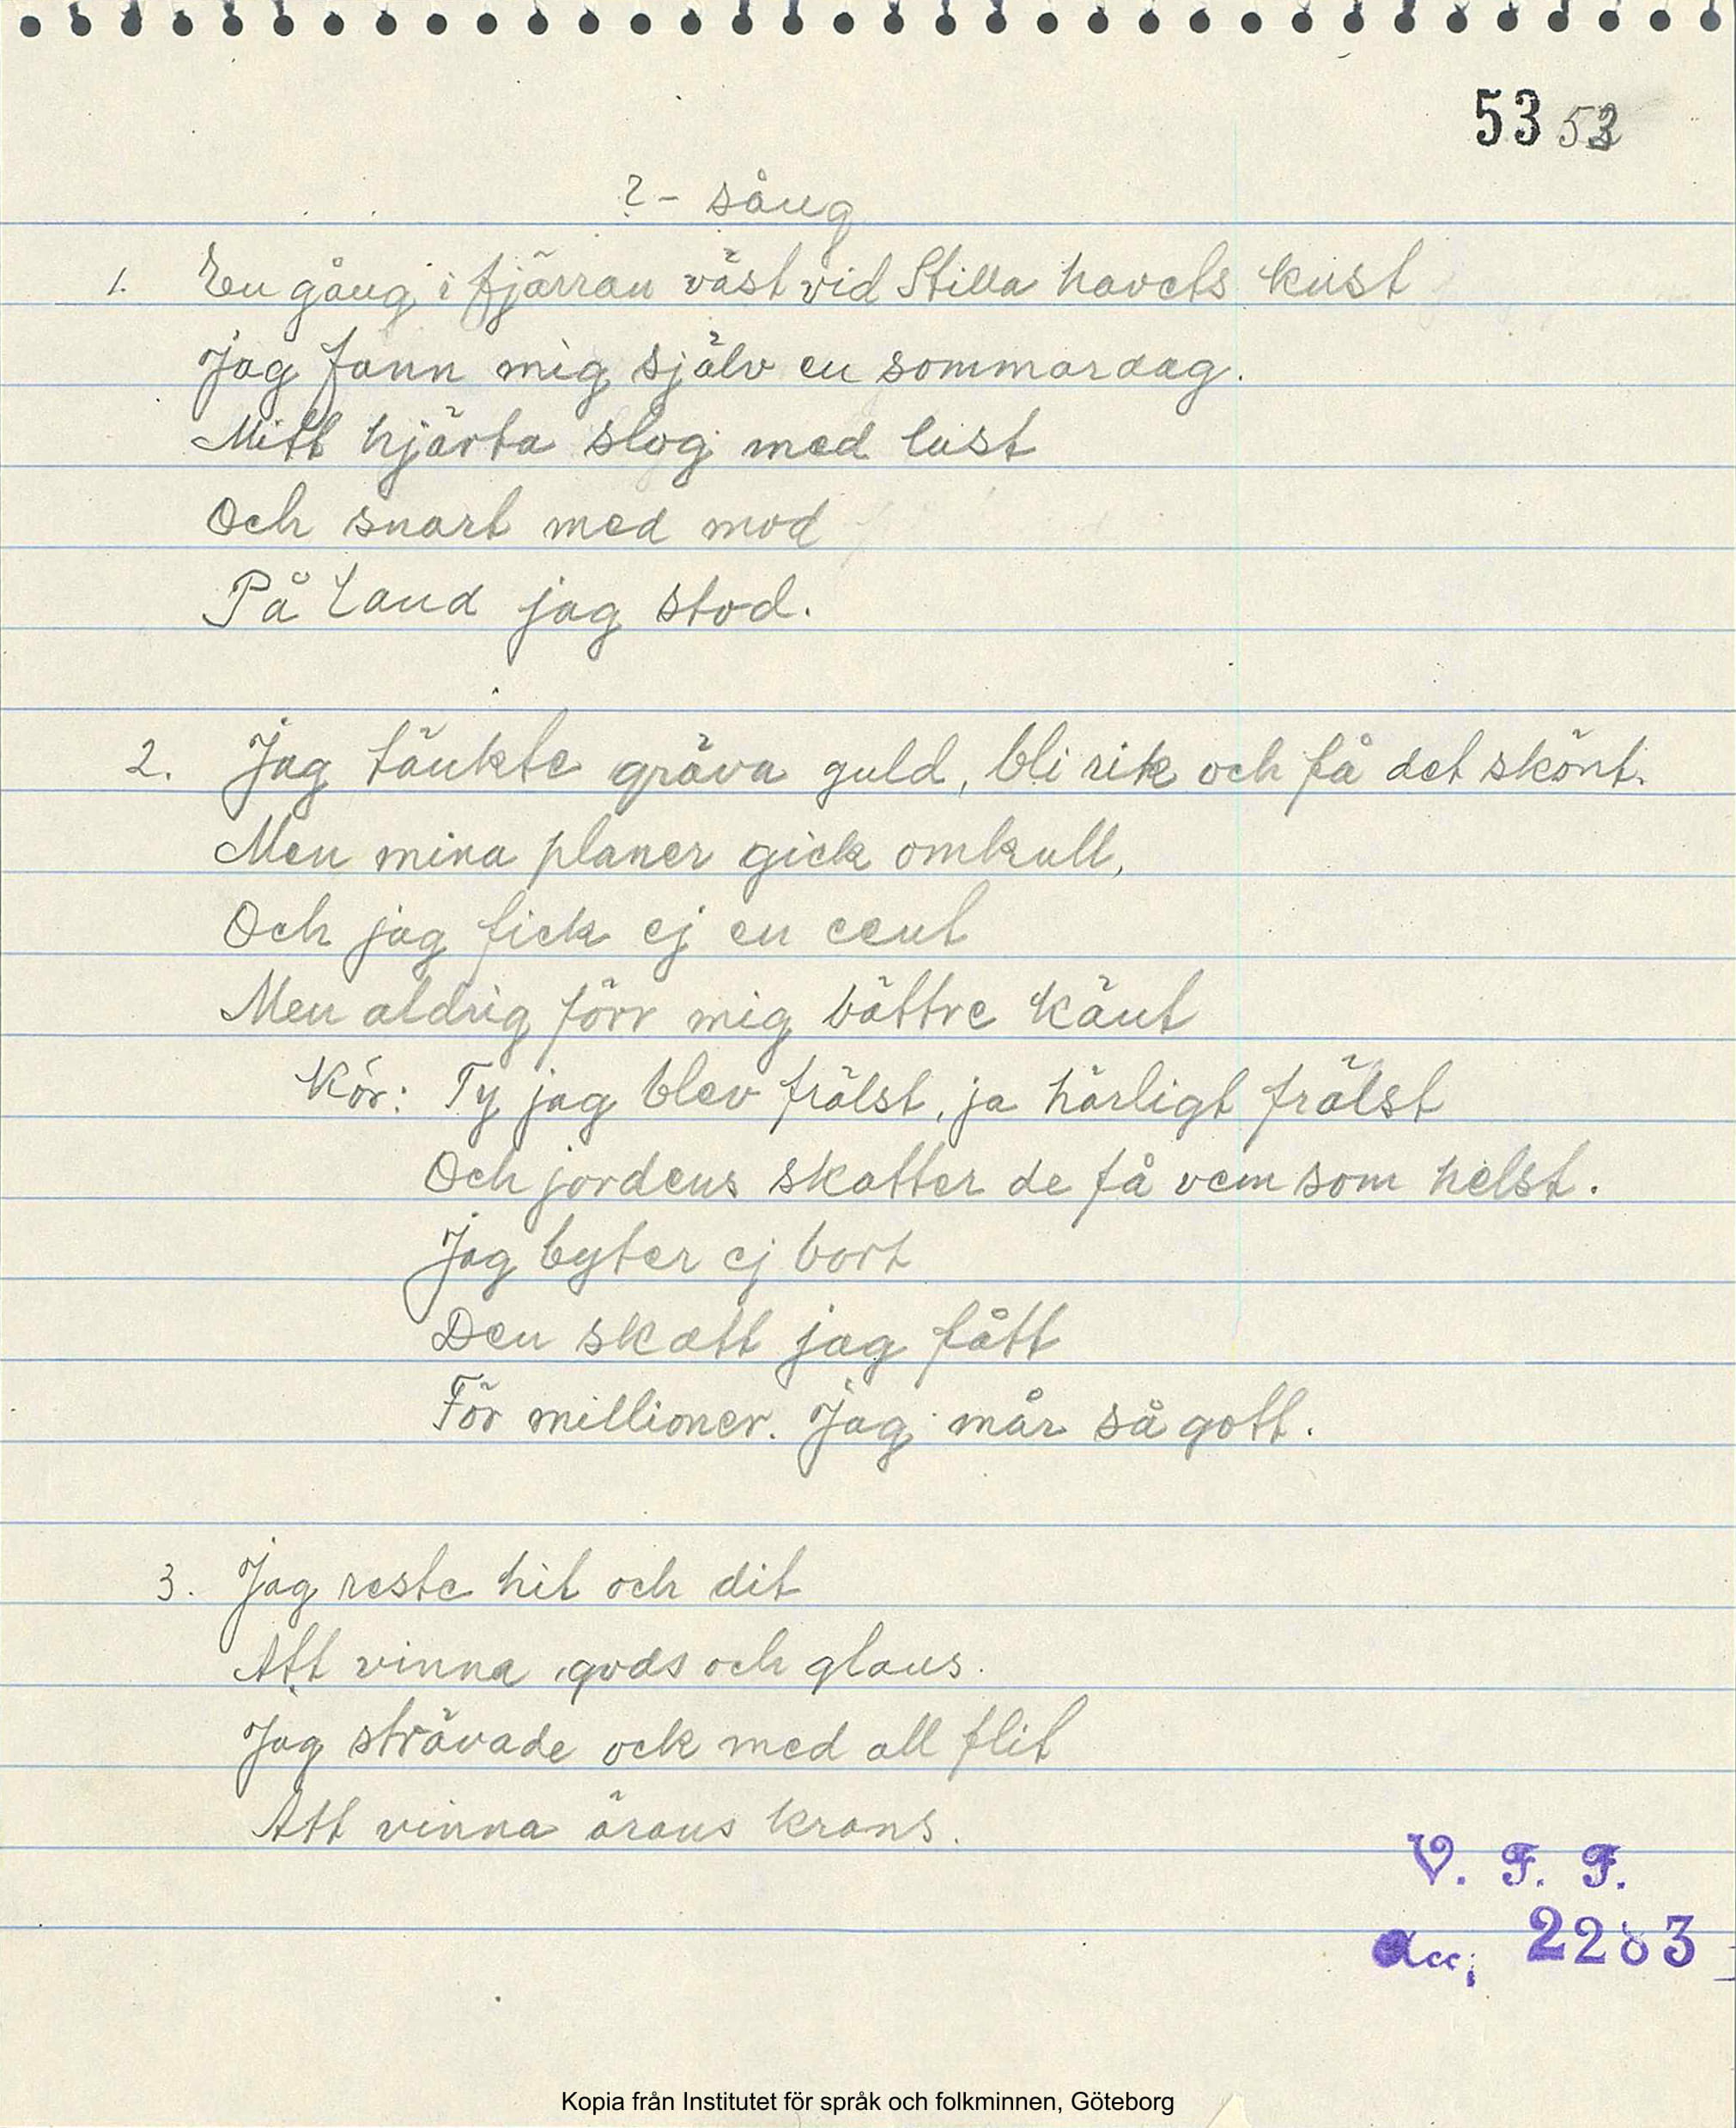 53 53
?- sång
1. En gång i fjärran väst vid Stilla havets kust
Jag fann mig själv en sommardag.
Mitt hjärta slog med lust
Och snart med mod
På land jag stod.
2. Jag tänkte gräva guld, bli rik och få det skönt.
Men mina planer gick omkull,
Och jag fick ej en cent
Men aldrig förr mig bättre känt
Kör: Ty jag blev frälst, ja härligt frälst
Och jordens skatter de få vem som helst.
Jag byter ej bort
Den skatt jag fått
För millioner. Jag mår så gott.
3. Jag reste hit och dit
Att vinna gods och glans.
Jag strävade ock med all flit
Att vinna ärans krans.
V. F. F.
Acc, 2283
Kopia från Institutet för språk och folkminnen, Göteborg